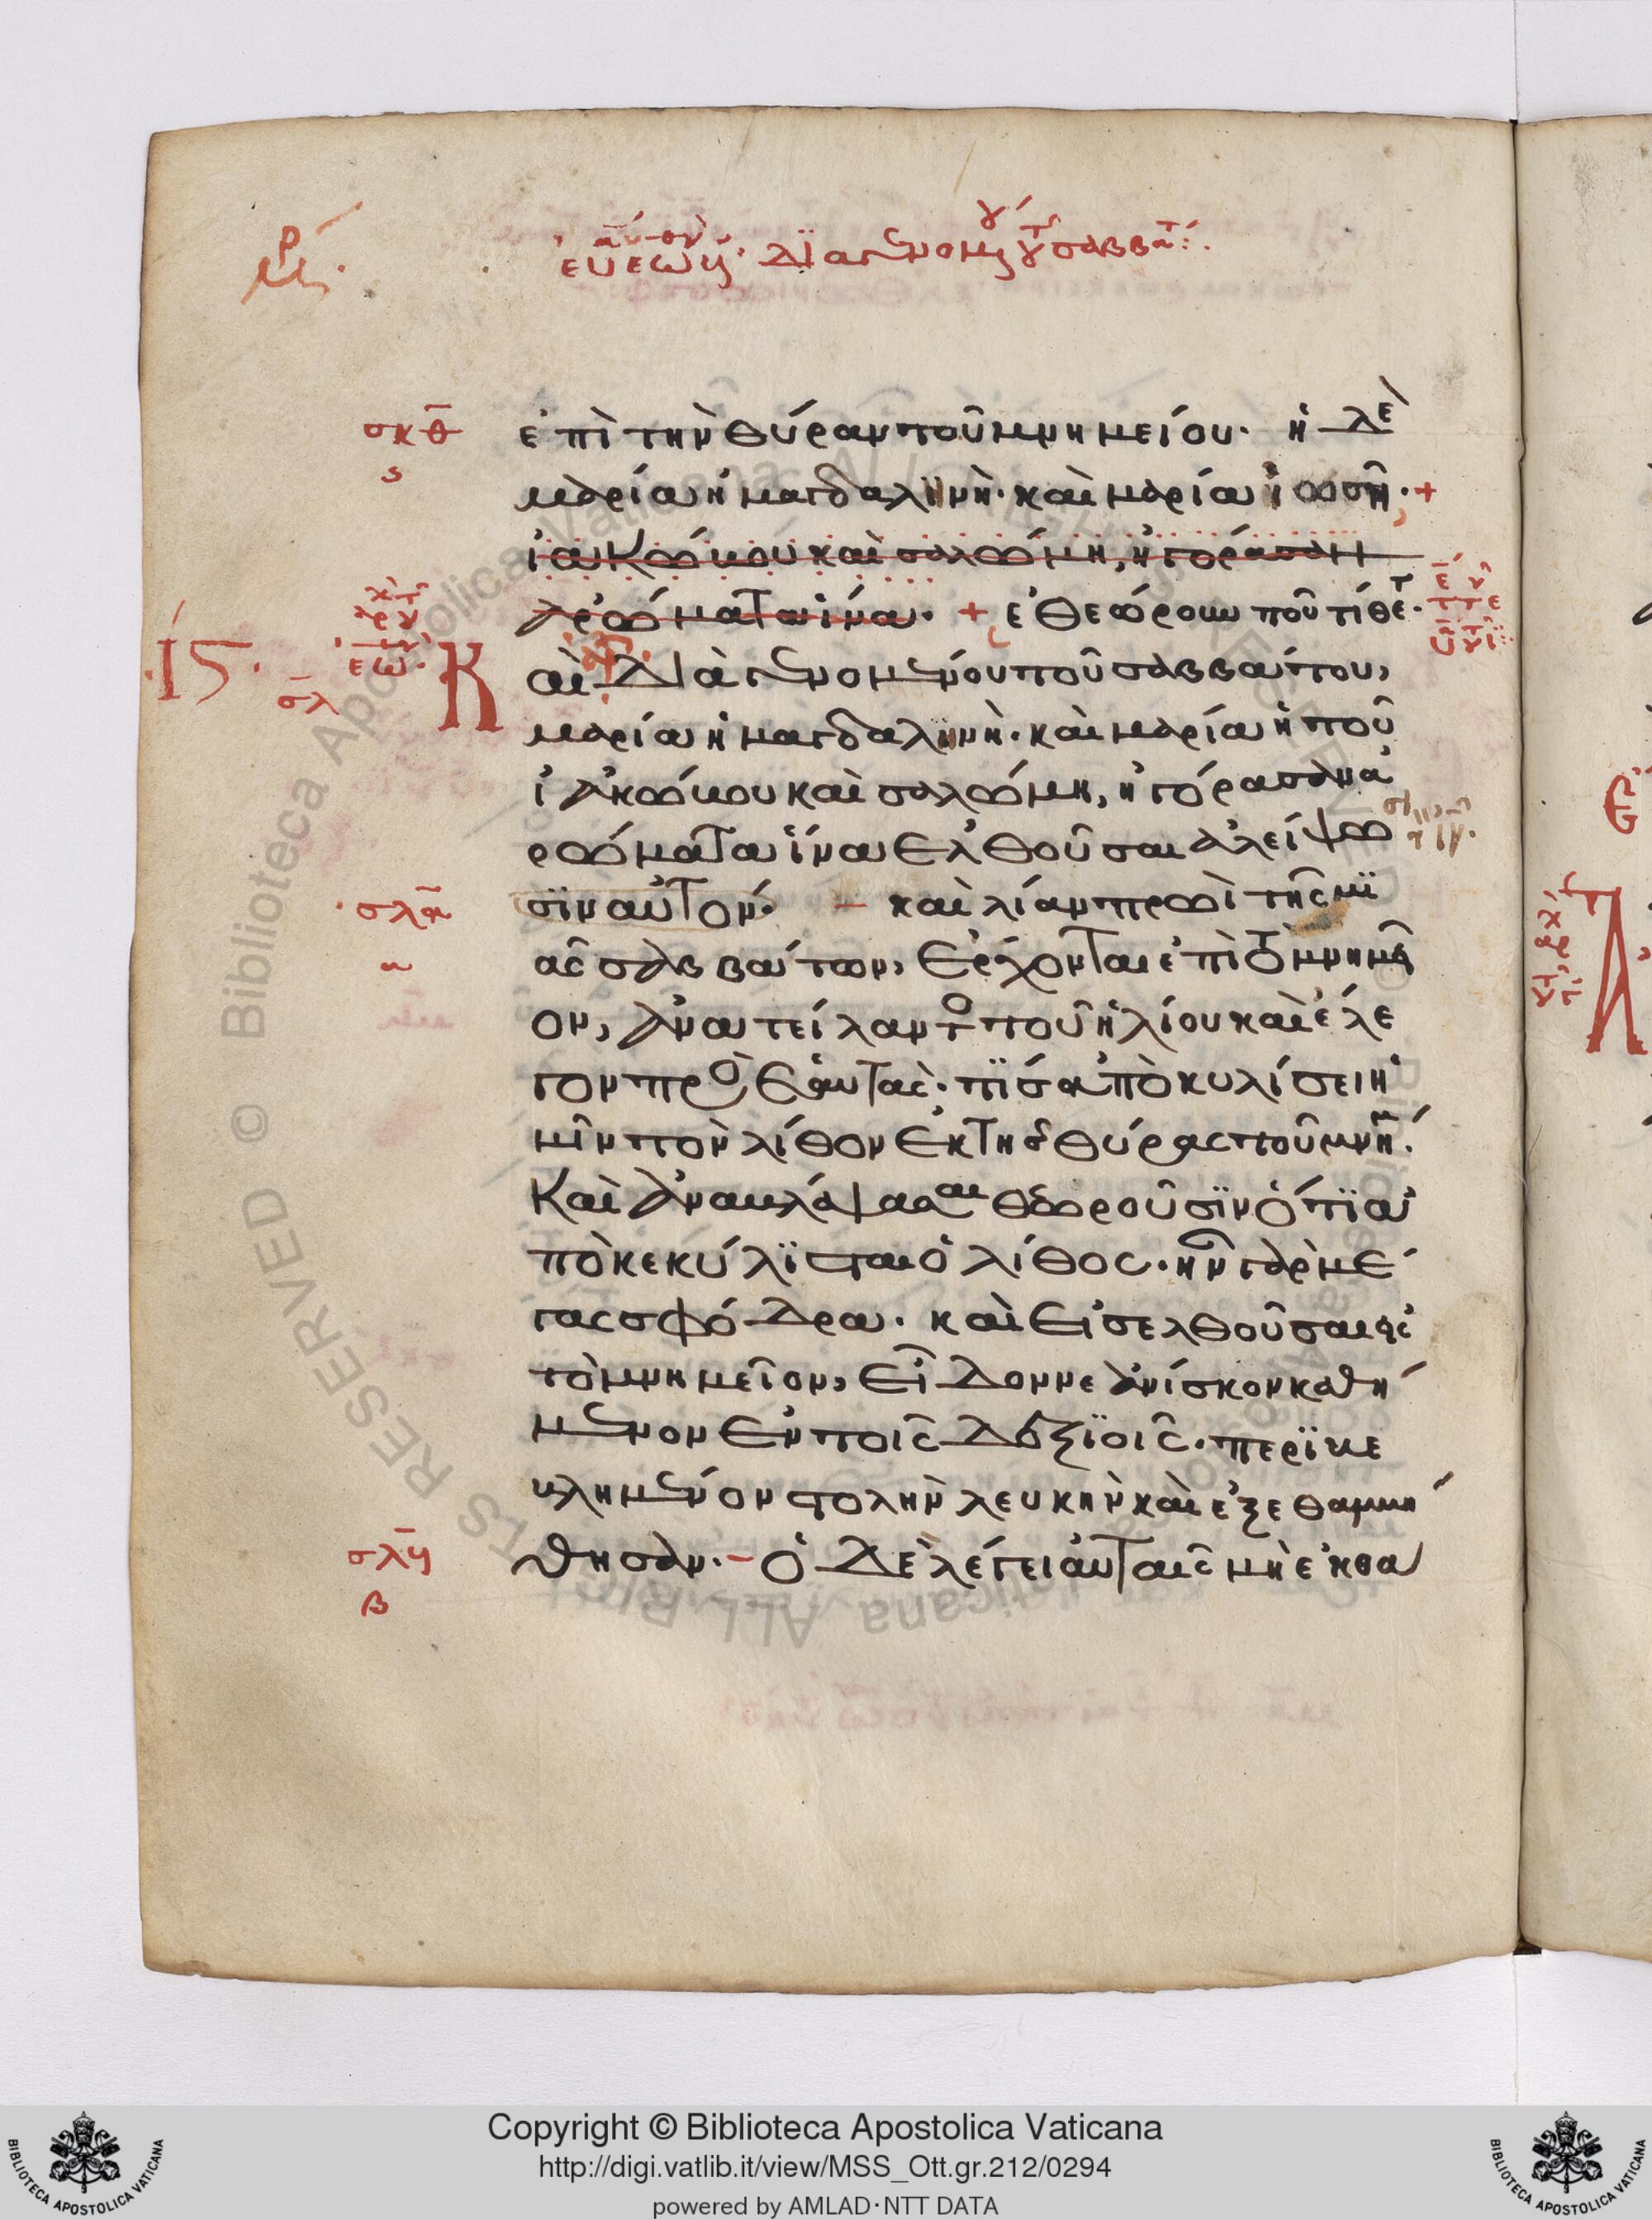 ἐπὶ τὴν θύραν τοῦ μνημείου· ἡ δὲ
μαρία ἡ μαγδαληνὴ· καὶ μαρία ἰωσῆ· +
ἰακώβου καὶ σαλώμη, ἠγόρασαν
ἀρώματα ἵνα· + ἐθεώρουν ποῦ τίθετ·
Καὶ διαγενομένου τοῦ σαββάτου,
μαρία ἡ μαγδαληνὴ· καὶ μαρία ἡ τοῦ
ἰἀκώβου καὶ σαλώμη, ἠγόρασαν ἀ
ρώματα ἵνα ἐλθοῦσαι ἀλείψω
σϊν αὐτόν· – καὶ λίαν πρωῒ τῆς μϊ
ᾶς σαββάτων, ἔρχονται ἐπὶ τὸ μνημεῖ
ον, ἀνατείλαντο τοῦ ἡλίου καὶ ἔλε
γον πρὸ ἑαυτὰς· τΐσ ἀποκυλίσει ἡ
μῖν τὸν λίθον ἐκ τῆσ θύρας τοῦ μνη·
Καὶ ἀναβλέψασαι θεωροῦσϊν ὅτϊ ἀ
ποκεκύλϊσται ὁ λίθος· ἦν γὰρ μέ
γας σφόδρα· καὶ εἰσελθοῦσαι εἰς
τὸ μνημεῖον, εἶδον νεἀνίσκον καθή
μενον ἐν τοῖς δεξϊοῖς· περϊβε
βλημένον στολὴν λευκὴν καὶ ἐξεθαμβή
θησαν· – Ὁ δὲ λέγει αὐταῖς μὴ ἐκθα
σκθ
ς
σλ
·ΙϚ·
σλα
α
σλβ
β
Copyright © Biblioteca Apostolica Vaticana
http://digi.vatlib.it/view/MSS_Ott.gr.212/0294
powered by AMLAD·NTT DATA
BIBLIOTECA APOSTOLICA VATICANA
BIBLIOTECA APOSTOLICA VATICANA